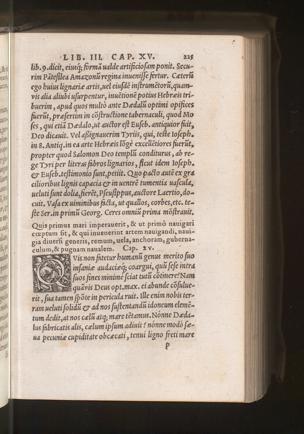 LIB. III. CAP. XV. 225
lib. 9. dicit, eiusq; formā ualde artificiosam ponit. Secu-
rim Pātesilea Amazonū regina inuenisse fertur. Cæterū
ego huius lignariæ artis, uel eiusdē instrumētorū, quam-
uis alia aliubi usurpentur, inuētionē potius Hebræis tri-
buerim, apud quos multo ante Dædalū optimi opifices
fuerūt, præsertim in cōstructione tabernaculi, quod Mo
ses, qui etiā Dædalo, ut autor est Euseb. antiquior fuit,
Deo dicauit. Vel assignauerim Tyriis, qui, teste Ioseph.
in 8. Antiq. in ea arte Hebræis lōgè excellētiores fuerūt,
propter quod Salomon Deo templū conditurus, ab re-
ge Tyri per literas fabros lignarios, sicut idem Ioseph.
& Euseb. testimonio sunt, petiit. Quo pacto autē ex gra
cilioribus lignis capacia & in uentrē tumentia uascula,
ueluti sunt dolia, fierēt, Pseusippus, auctore Laertio, do-
cuit. Vasa ex uiminibus ficta, ut qualos, corbes, etc. te-
ste Ser. in primū Georg. Ceres omniū prima mōstrauit.
Quis primus mari imperauerit, & ut primò nauigari
cœptum sit, & qui inuenerint artem nauigandi, naui-
gia diuersi generis, remum, uela, anchoram, guberna-
culum, & pugnam naualem. Cap. XV.
QVis non fitetur humanū genus merito suo
insaniæ audaciæq; coargui, quū sese intra
suos fines minimè sciat tutū cōtinere? Nam
quāuis Deus opt. max. ei abunde cōsulue-
rit, sua tamen spōte in pericula ruit. Ille enim nobis ter-
ram ueluti solidū & ad nos sustentandū idoneum elemē-
tum dedit, at nos cælū atq; mare tētamus. Nónne Dæda-
lus fabricatis alis, cælum ipsum adiuit? nónne modò sæ-
ua pecuniæ cupiditate obcæcati, tenui ligno freti mare
P